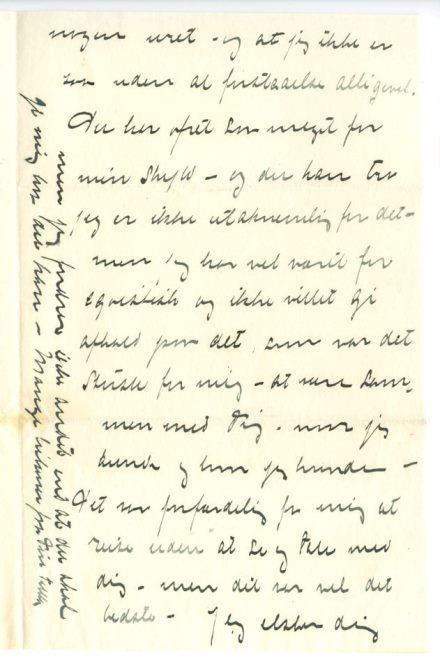 nogen uret - og at jeg ikke er
saa uden al forstaaelse alligevel.
Du har ofret saa meget for
min Skyld - og du kan tro
jeg er ikke utaknemlig for det -
men jeg har vel været for
egoistisk og ikke villet gi
afkald paa det, som var det
største for mig - at være sam-
men med dig - naar jeg
kunde og hvor jeg kunde -
Det var forfærdelig for mig at
reise uden at se og tale med
dig - men det var vel det
bedste - Jeg elsker dig
men jeg fordrer ikke andet end at du skal
gi mig lov dertil - Mange hilsener fra Din